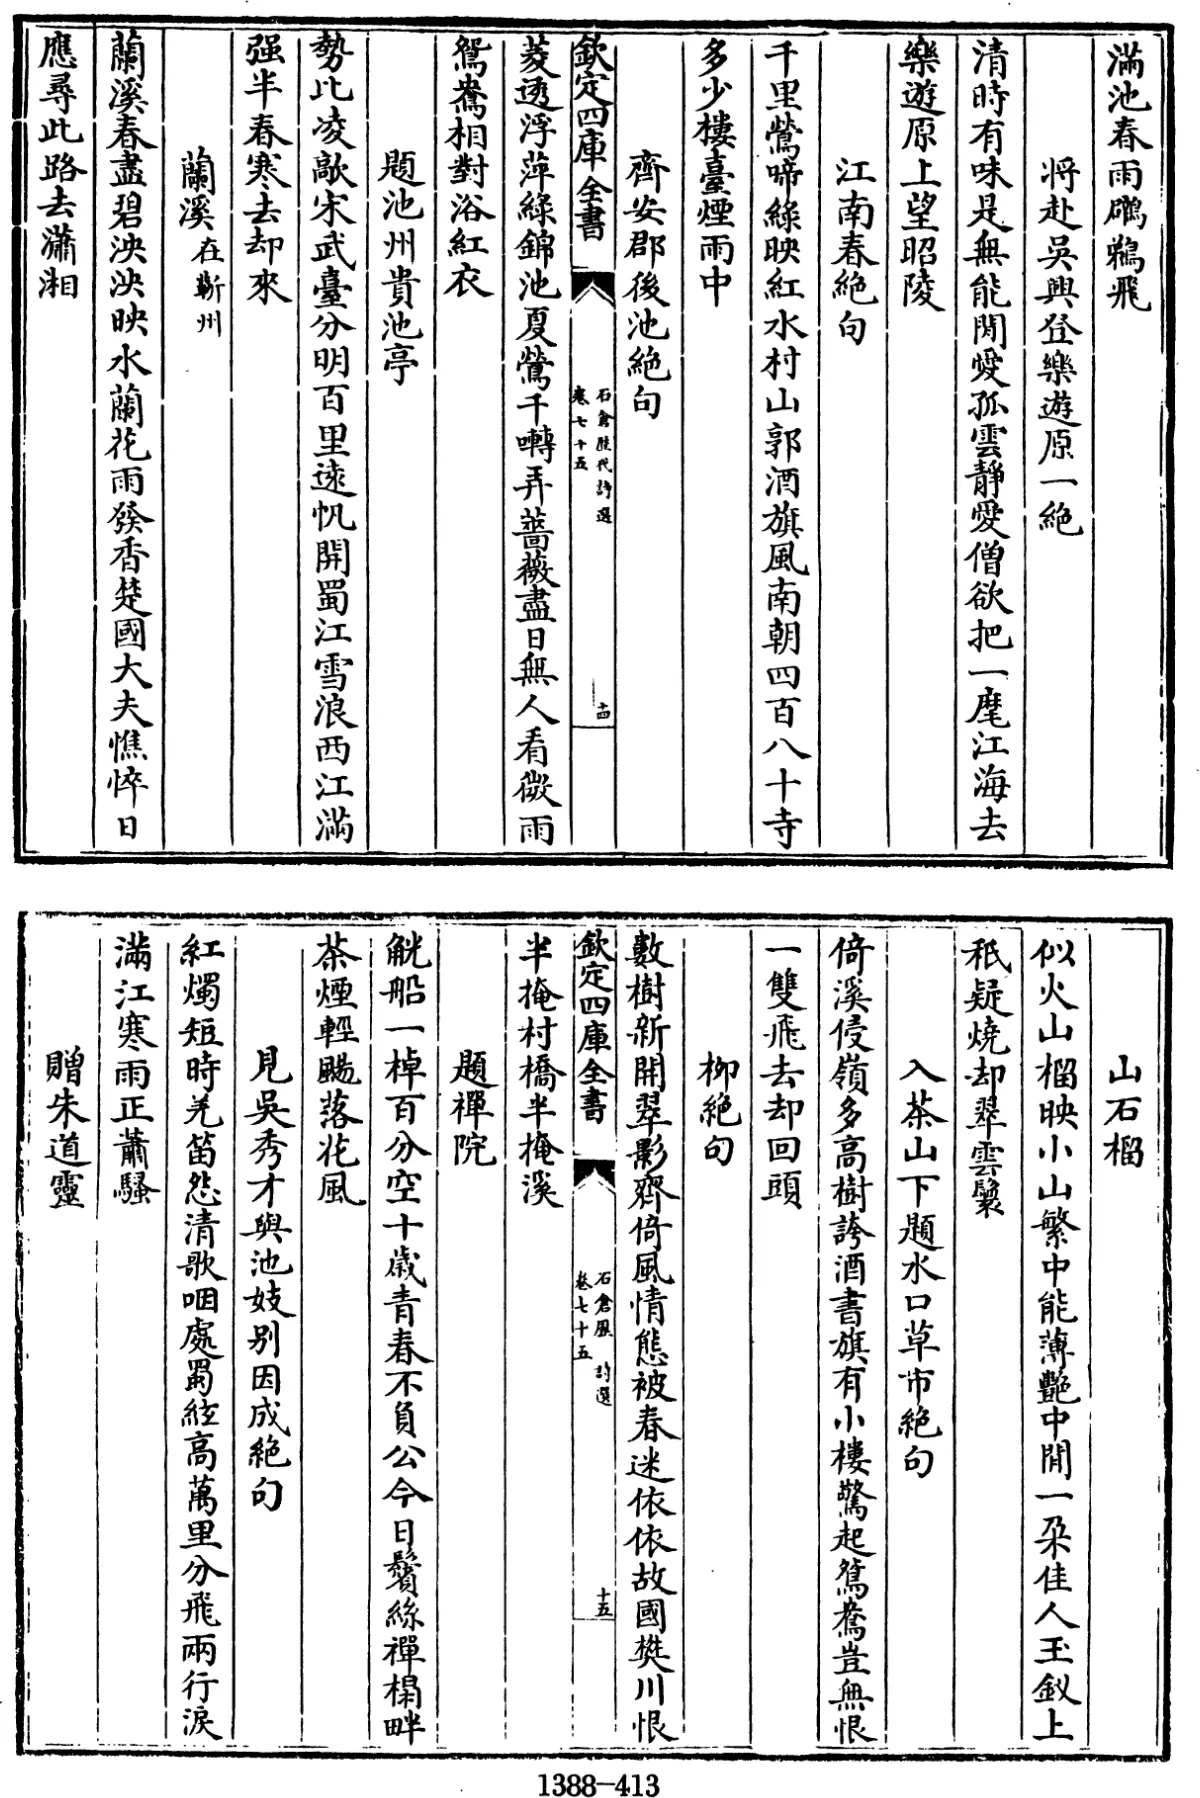 滿池春雨鸊鵜飛
將赴吳興登樂遊原一絶
清時有味是無能閒愛孤雲靜愛僧欲把一麾江海去
樂遊原上望昭陵
江南春絶句
千里鶯啼綠映紅水村山郭酒旗風南朝四百八十寺
多少樓臺煙雨中
齊安郡後池絶句
欽定四庫全書
石倉歷代詩選
卷七十五
十四
菱透浮萍綠錦池夏鶯千囀弄薔薇盡日無人看微雨
鴛鴦相對浴紅衣
題池州貴池亭
勢比凌歊宋武臺分明百里遠帆開蜀江雪浪西江滿
强半春寒去却來
蘭溪在蘄州
蘭溪春盡碧泱泱映水蘭花雨發香楚國大夫憔悴日
應尋此路去瀟湘
山石榴
似火山榴映小山繁中能薄艷中閒一朶佳人玉釵上
秪疑燒却翠雲鬟
入茶山下題水口草市絶句
倚溪侵嶺多高樹誇酒書旗有小樓驚起鴛鴦豈無恨
一雙飛去却回頭
柳絶句
數樹新開翠影齊倚風情態被春迷依依故國樊川恨
欽定四庫全書
石倉歷 詩選
卷七十五
十五
半掩村橋半掩溪
題禪院
觥船一棹百分空十歲青春不負公今日鬢絲禪榻畔
茶煙輕颺落花風
見吳秀才與池妓别因成絶句
紅燭短時羌笛怨清歌咽處蜀絃高萬里分飛兩行淚
滿江寒雨正蕭騷
贈朱道靈
1388-413